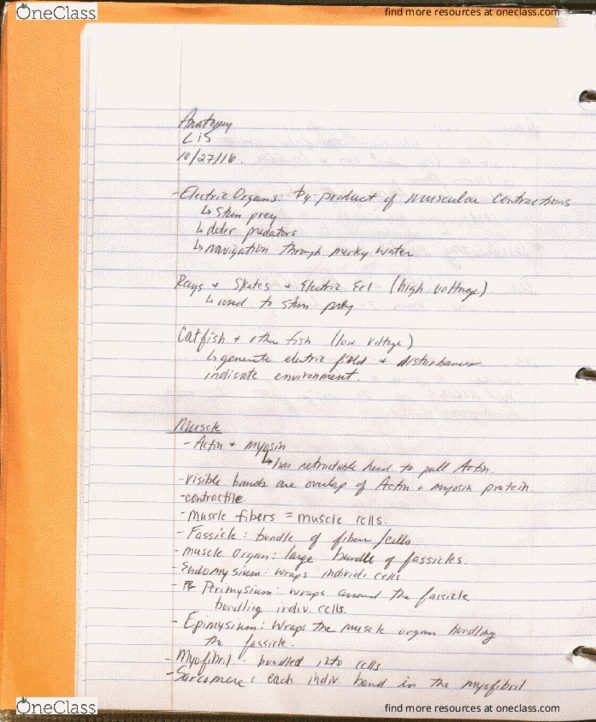 OneClass
find more resources at oneclass.com
Anatomy
L15
10/27/16.
- Electric Organs: by-product of muscular contractions
↳ Stun prey
↳ deter predators
↳ navigation through murky water
Rays + Skates + Electric Eel (high voltage)
↳ used to stun prey
Catfish + other fish (low voltage)
↳ generate electric field + disturbances
indicate environment.
Muscle
- Actin + myosin
↳ has retractable head to pull Actin.
- visible bands are overlap of Actin + myosin protein
- contractile
- Muscle fibers = muscle cells.
- Fassicle: bundle of fibers/cells.
- muscle Organ: large bundle of fassicles.
- Endomysium: wraps individ. cells.
- Perimysium: wraps around the fassicle
bundling indiv. cells.
- Epimysium: Wraps the muscle organ bundling
the fassicle.
- Myofibril: bundled into cells
- Sarcomere: each indiv band in the myofibril
OneClass
find more resources at oneclass.com